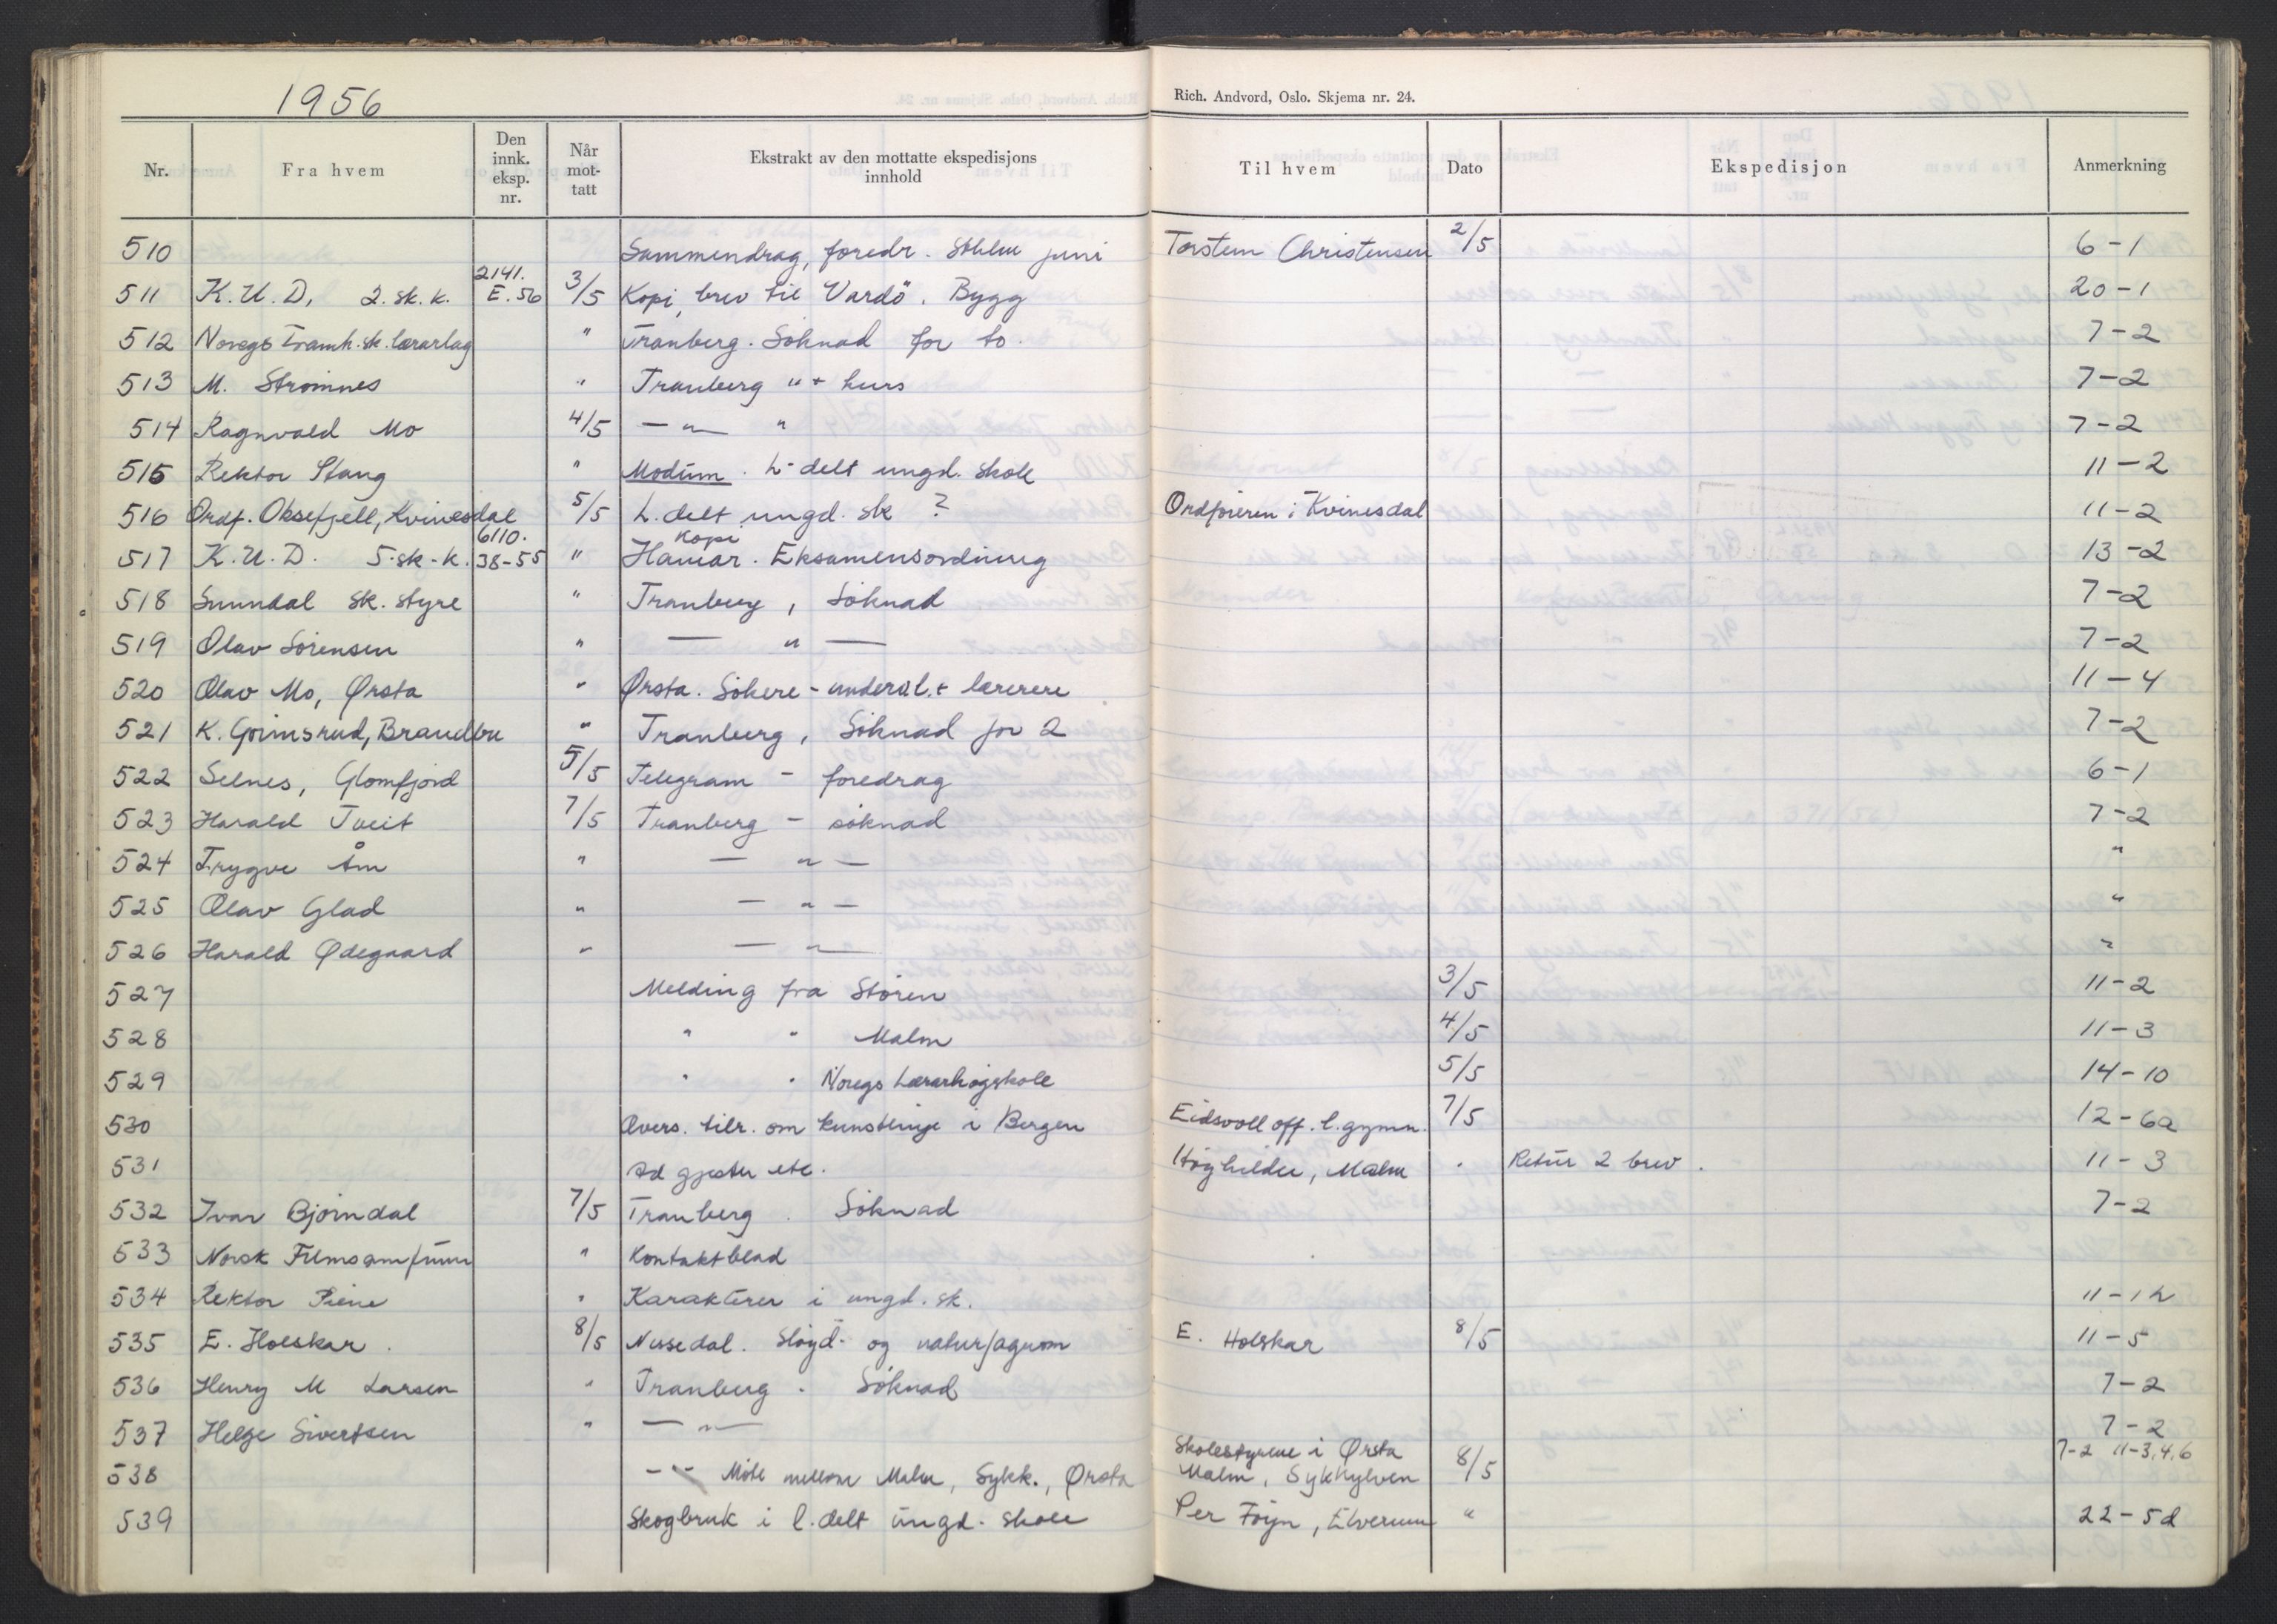 1956
Rich. Andvord, Oslo. Skjema nr. 24.
Nr. Fra hvem Den innk. eksp. nr. Når mottatt Ekstrakt av den mottatte ekspedisjons innhold Til hvem Dato Ekspedisjon Anmerkning
510 Sammendrag, foredr. Sthlm juni Torstein Christensen 2/5 6-1
511 K.U.D. 2. sk. k. 2141. E. 56 3/5 Kopi, brev til Vardö. Bygg 20-1
512 Noregs Framh. sk. lærarlag " Tranberg. Söknad for to. 7-2
513 M. Strömnes " Tranberg " + kurs 7-2
514 Ragnvald Mo 4/5 — " — " 7-2
515 Rektor Stang " Modum. L-delt ungd. skole 11-2
516 Ordf. Oksefjell, Kvinesdal 5/5 L. delt ungd. sk ? Ordföreren i Kvinesdal 11-2
517 K.U.D. 5. sk-k. 6110. 38-55 " Kopi Hamar. Eksamensordning 13-2
518 Sunndal sk. styre " Tranberg, Söknad 7-2
519 Olav Sörensen " — " — 7-2
520 Olav Mo, Ørsta " Ørsta. Sökere - underv.l. + lærere 11-4
521 K. Grimsrud, Brandbu " Tranberg, Söknad for 2 7-2
522 Selnes, Glomfjord 5/5 Telegram - foredrag 6-1
523 Harald Tveit 7/5 Tranberg - söknad 7-2
524 Trygve Åm " — " — "
525 Olav Glad " — " — "
526 Harald Ødegaard " — " — "
527 Melding fra Stören 3/5 11-2
528 " " Malm 4/5 11-3
529 " " Noregs Lærarhögskole 5/5 14-10
530 Overs. tilr. om kunstlinje i Bergen Eidsvoll off. l. gymn. 7/5 12-6a
531 Ad gjester etc. Höghilder, Malm " Retur 2 brev. 11-3
532 Ivar Björndal 7/5 Tranberg. Söknad 7-2
533 Norsk Filmsamfunn " Kontaktblad
534 Rektor Piene " Karakterer i ungd. sk. 11-1
535 E. Holskar. 8/5 Nissedal. Slöyd- og naturfagrom E. Holskar 8/5 11-5
536 Henry M Larsen " Tranberg. Söknad 7-2
537 Helge Sivertsen " — " — 7-2
538 — " Möte mellom Malm, Sykk., Ørsta Skolestyrene i Ørsta Malm, Sykkylven 8/5 7-2 11-3,4,6
539 Skogbruk i l. delt ungd. skole Per Föyn, Elverum " 22-5d